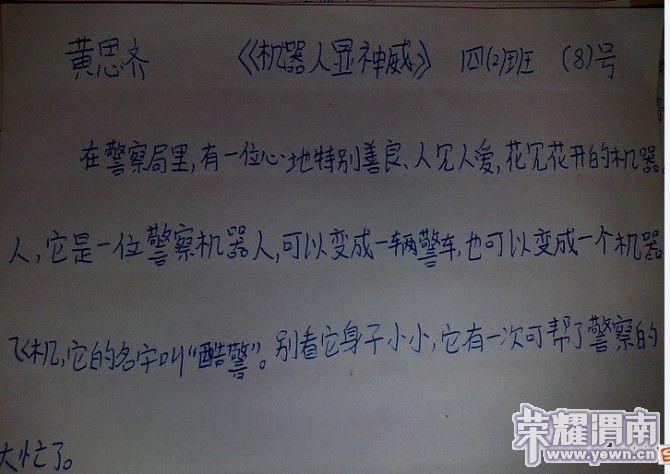 黄思齐 《机器人显神威》 四(2)班 (8)号
在警察局里,有一位心地特别善良、人见人爱,花见花开的机器
人,它是一位警察机器人,可以变成一辆警车,也可以变成一个机器
飞机,它的名字叫“酷警”。别看它身子小小,它有一次可帮了警察的
大忙了。
荣耀渭南
www.yewn.cn